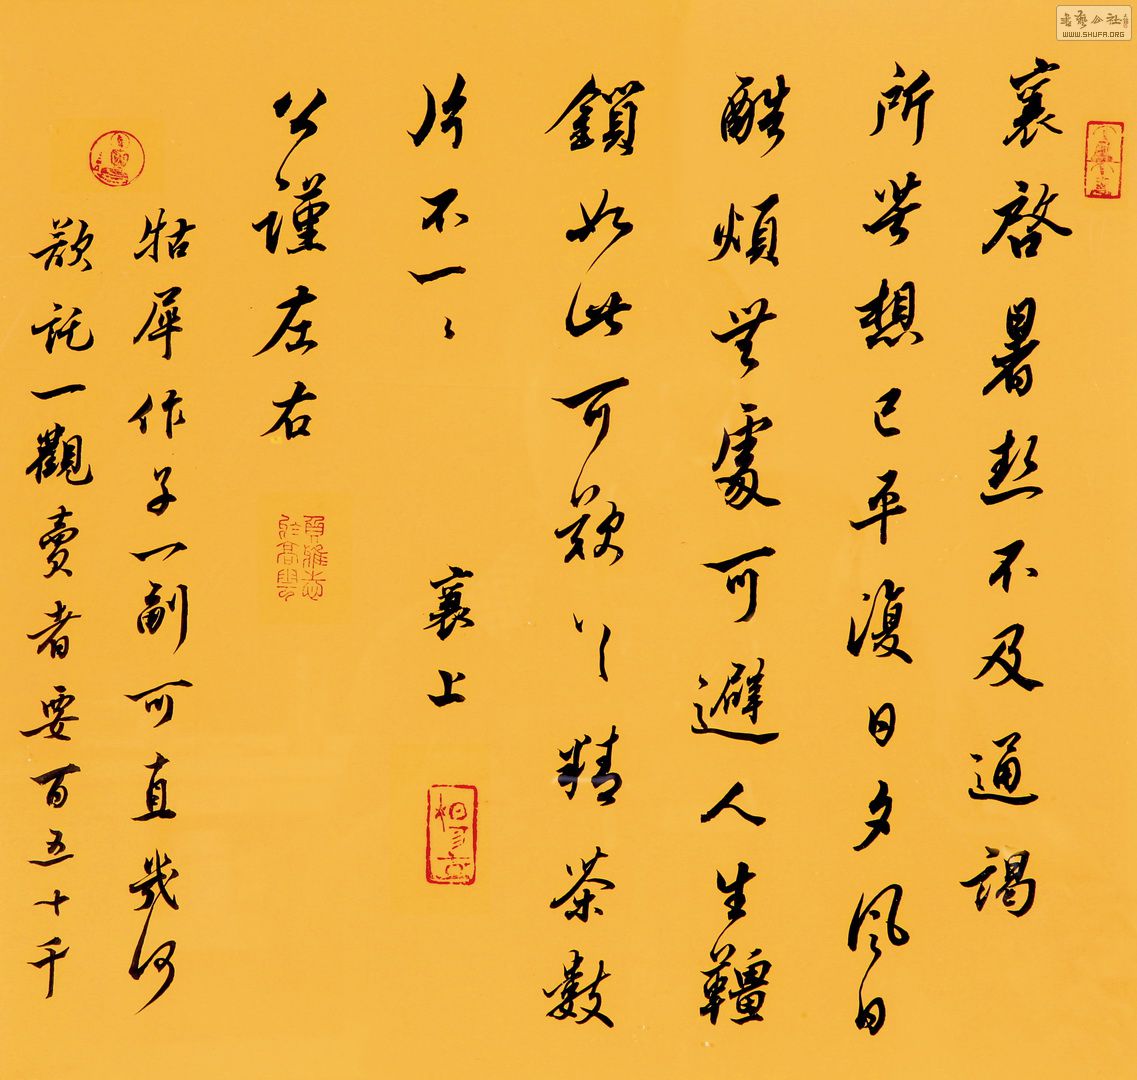 襄啓暑熱不及通謁
所苦想已平復日夕風日
酷煩無處可避人生韁
鎖如此可歎〻精茶數
片不一〻
襄上
公謹左右
牯犀作子一副可直幾何
欲託一觀賣者要百五十千
書藝公社
WWW.SHUFA.ORG